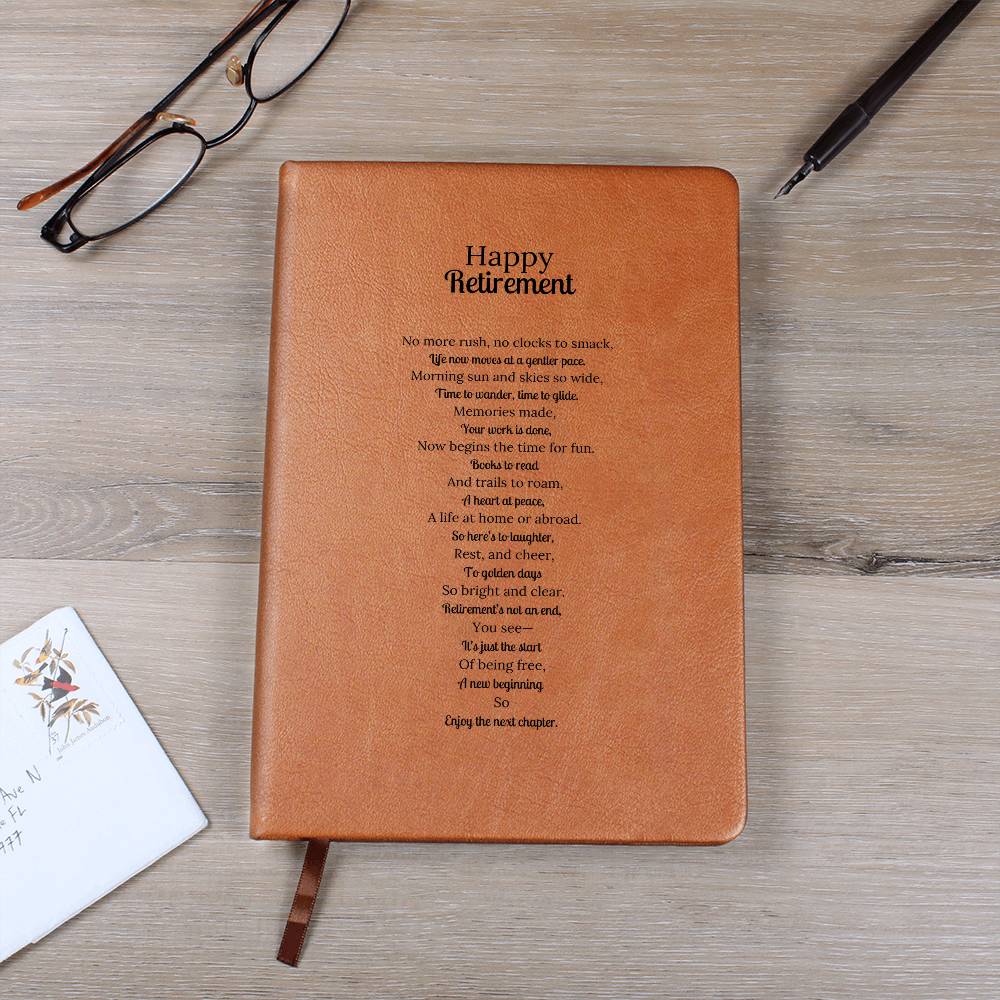 Happy
Retirement
No more rush, no clocks to smack,
Life now moves at a gentler pace.
Morning sun and skies so wide,
Time to wander, time to glide.
Memories made,
Your work is done,
Now begins the time for fun.
Books to read
And trails to roam,
A heart at peace,
A life at home or abroad.
So here's to laughter,
Rest, and cheer,
To golden days
So bright and clear,
Retirement's not an end,
You see—
It's just the start
Of being free,
A new beginning
So
Enjoy the next chapter.
37
John James Audubon
Ave N
FL
977